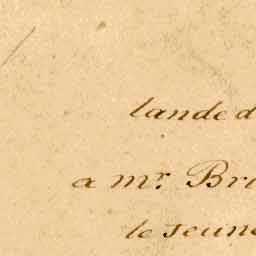 lande d
a mr. Bri
le jeune